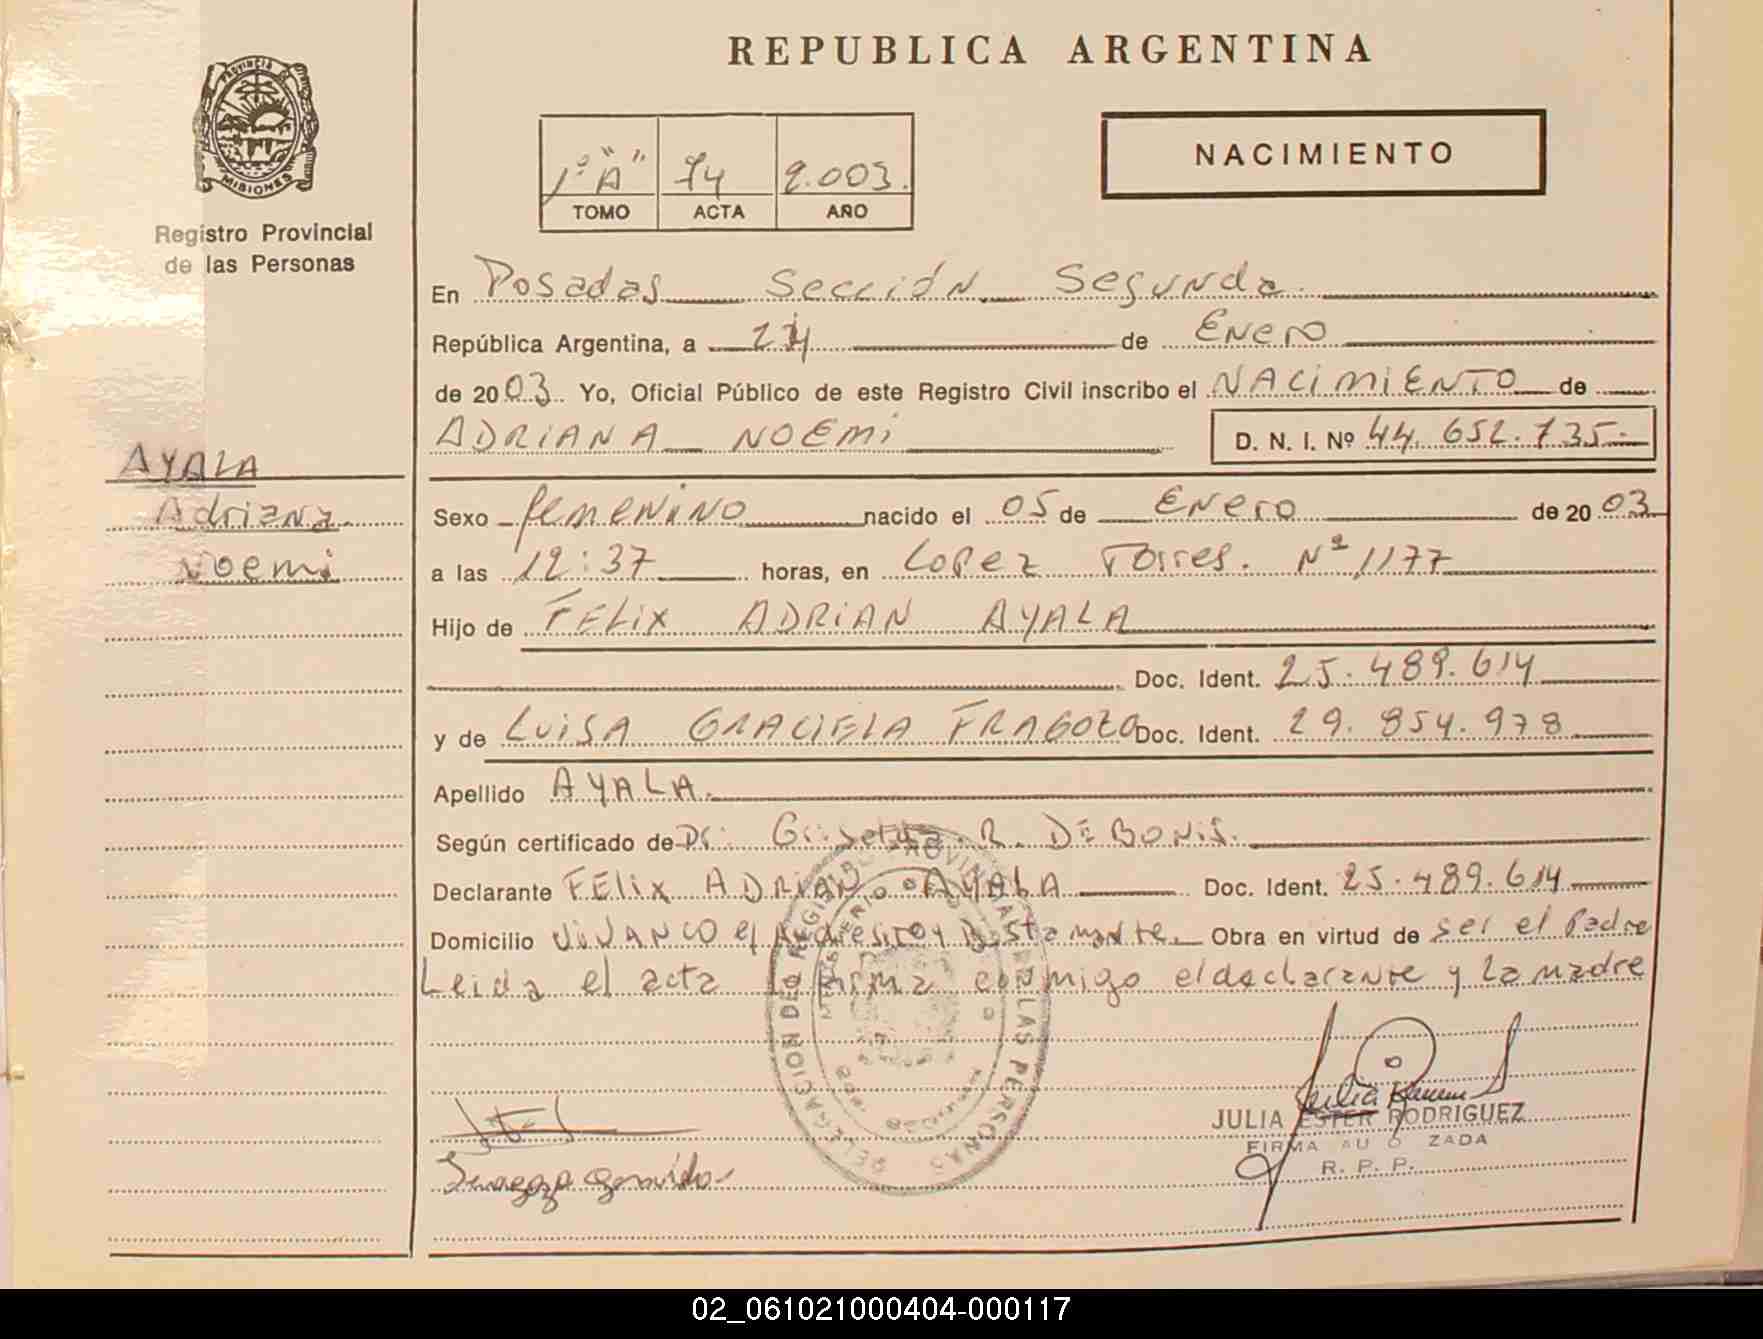 REPUBLICA ARGENTINA
PROVINCIA DE
MISIONES
Registro Provincial
de las Personas
1º "A" 74 2.003.
TOMO ACTA AÑO
NACIMIENTO
En Posadas Sección Segunda.
República Argentina, a de Enero
de 2003. Yo, Oficial Público de este Registro Civil inscribo el NACIMIENTO de
ADRIANA NOEMI D. N. I. Nº 44.652.735.
AYALA
Adriana
Noemi
Sexo femenino nacido el 05 de Enero de 2003
a las 12:37 horas, en Lopez Torres. Nº 1177
Hijo de FELIX ADRIAN AYALA
Doc. Ident. 25.489.614
y de LUISA GRACIELA FRAGOZO Doc. Ident. 29.854.978
Apellido AYALA.
Según certificado de Dr: Griselda R. DE BONIS.
Declarante FELIX ADRIAN AYALA Doc. Ident. 25.489.614
Domicilio VIVANCO e/ Andresito y Bustamante. Obra en virtud de ser el Padre
Leida el acta la firma conmigo el declarante y la madre
DELEGACION DEL REGISTRO PROVINCIAL DE LAS PERSONAS
MINISTERIO DE
JULIA ESTER RODRIGUEZ
FIRMA AU O ZADA
R. P. P.
02_061021000404-000117